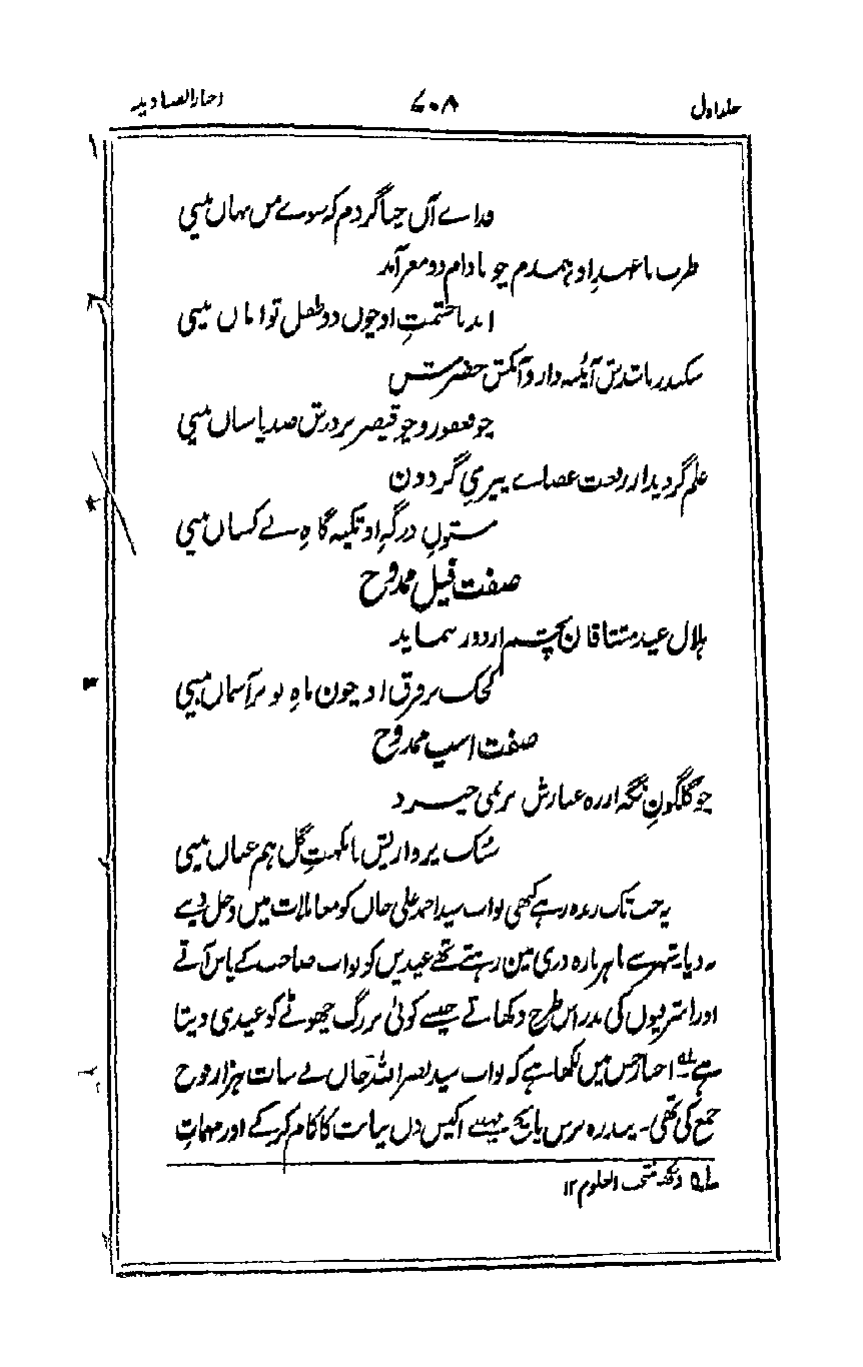 جلد اول ۶۰۸ اخبار الصنادید
فداے آں جیا گردم کہ سوے من نہاں بینی
طرب با عہدِ او ہمدم چو بادام دو مغز آمد
ابد با حشمتِ او چوں دو طفل توا ماں بینی
سکندر باشدش آئینہ دار و آبکش خضرستش
چو فغفور و چو قیصر بر درش صد پاسباں بینی
علم گردید از رفعت عصاے پیریِ گردون
ستونِ درگہِ او تکیہ گاہِ بے کساں بینی
صفت فیل ممدوح
ہلال عید مشتاقان بچشم از دور بنماید
کجک بر فرق او چون ماہِ نو بر آسماں بینی
صفت اسپ ممدوح
چو گلگونِ نگہ از رہ غبارش برنمی خیزد
سبک پروازیش با نکہتِ گل ہم عناں بینی
یہ جب تک زندہ رہے کبھی نواب سید احمد علی خاں کو معاملات میں دخل دینے
نہ دیا شہر سے باہر بارہ دری مین رہتے تھے عیدیں کو نواب صاحب کے پاس آتے
اور اشرفیوں کی نذر اس طرح دکھاتے جیسے کوئی بزرگ چھوٹے کو عیدی دیتا
ہے لہ اخبار حسن میں لکھا ہے کہ نواب سید نصر اللہ خاں نے سات ہزار فوج
جمع کی تھی۔ پندرہ برس پانچ مہینے اکیس دن نیابت کا کام کر کے اور مہمات
لہ دیکھو منتخب العلوم ۱۲